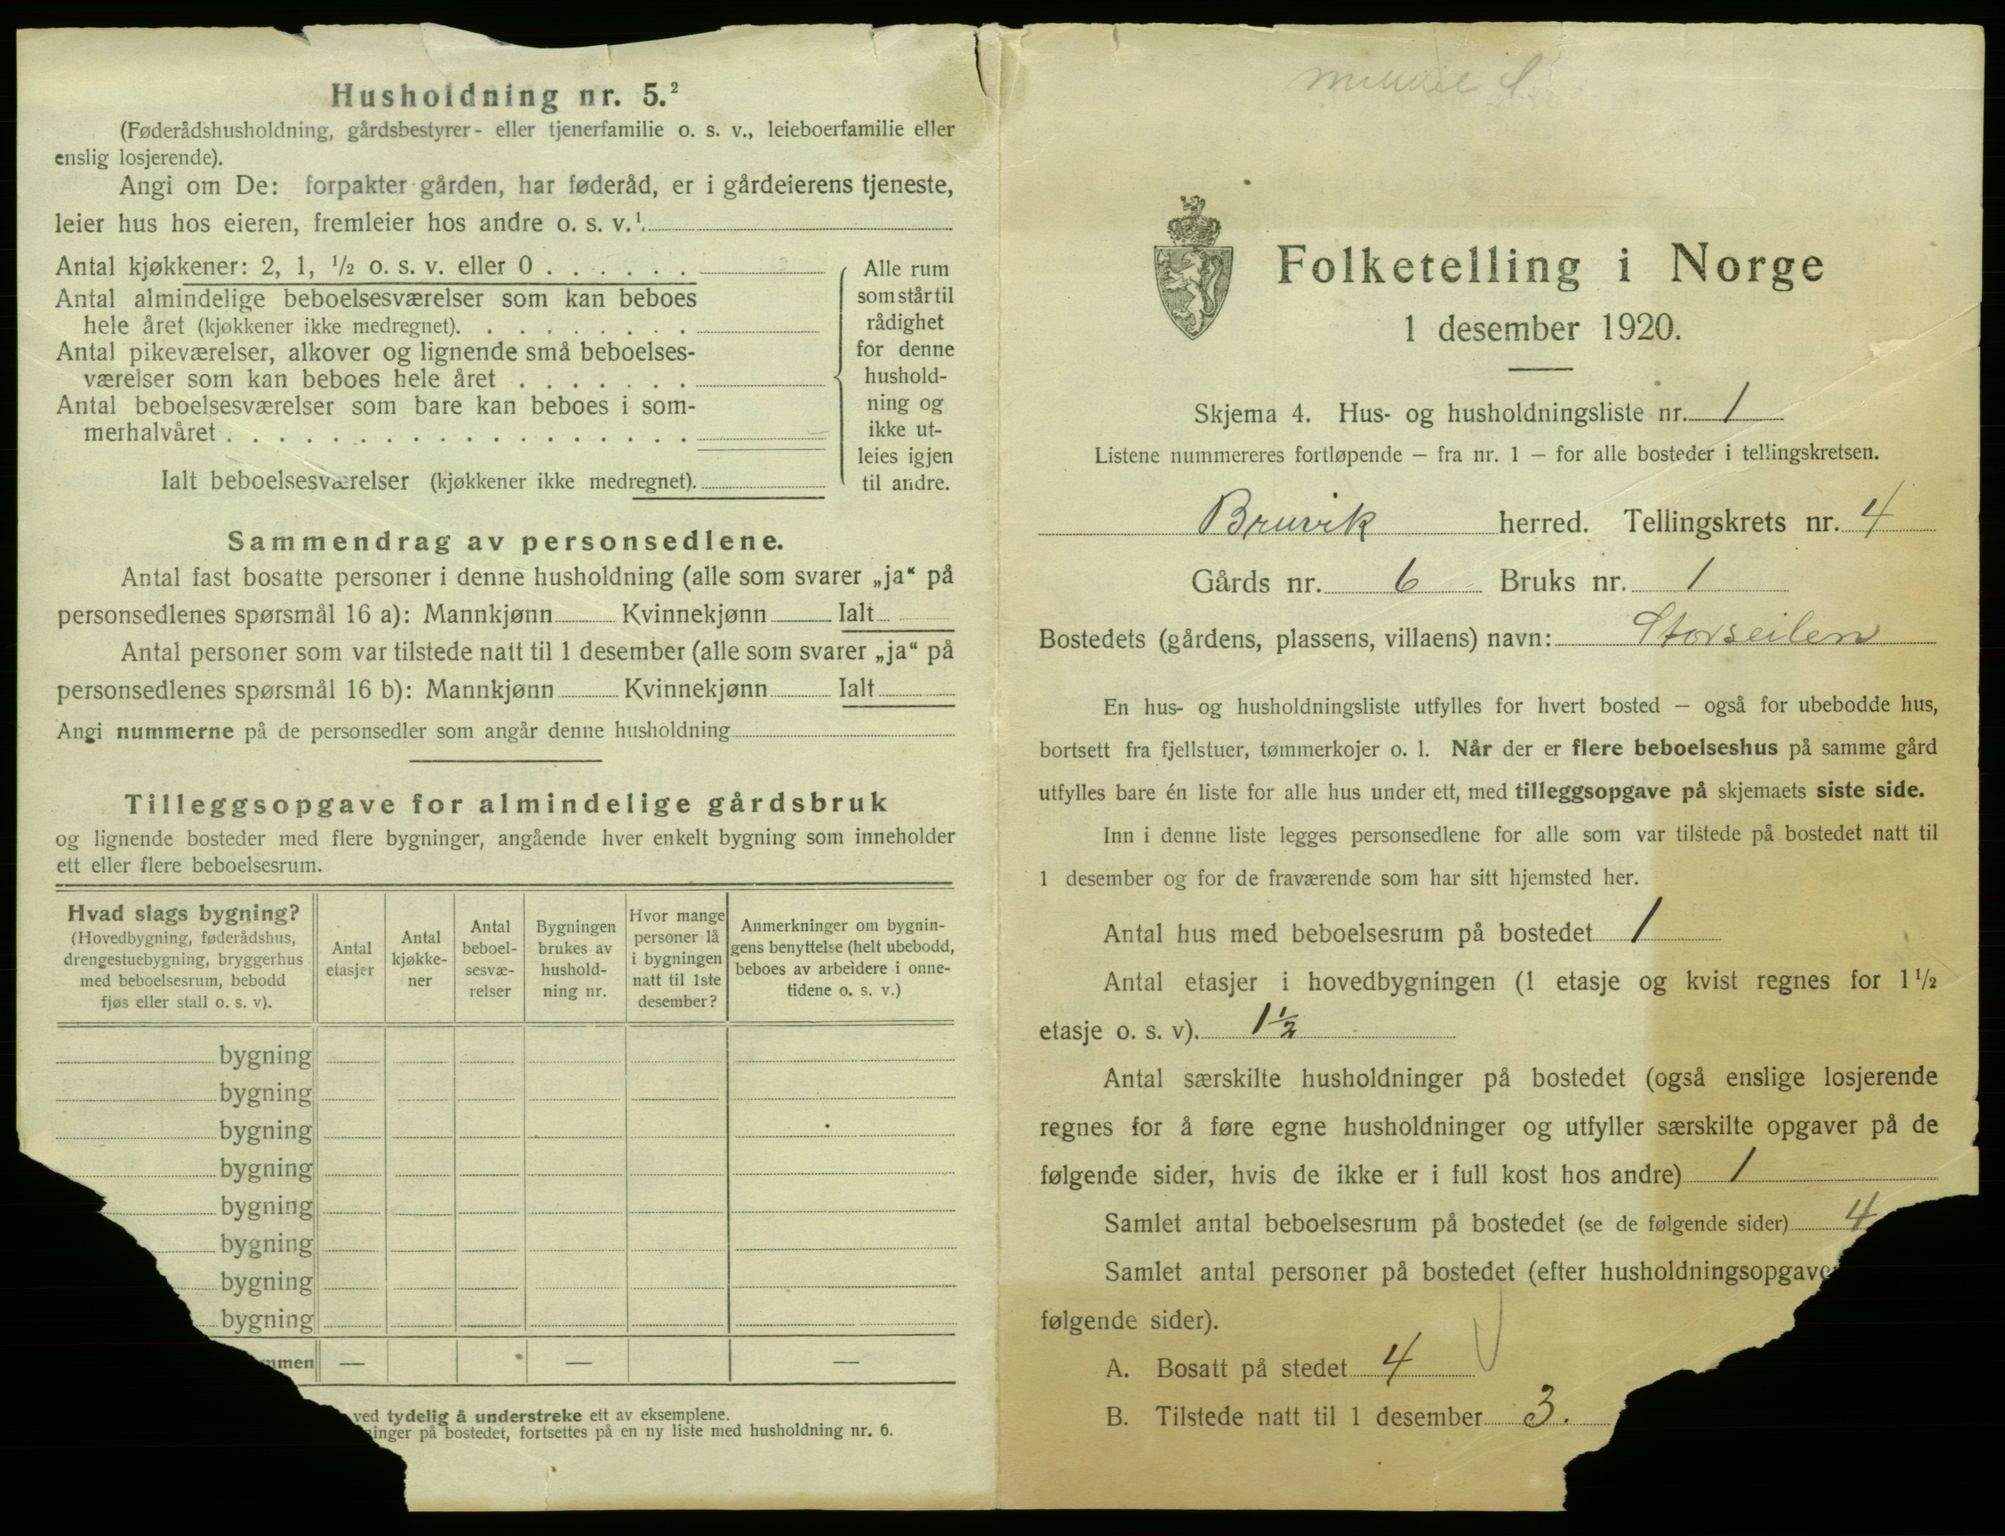 Husholdning nr. 5.²
(Føderådshusholdning, gårdsbestyrer- eller tjenerfamilie o. s. v., leieboerfamilie eller
enslig losjerende).
Angi om De: forpakter gården, har føderåd, er i gårdeierens tjeneste,
leier hus hos eieren, fremleier hos andre o. s. v.¹.
Antal kjøkkener: 2, 1, ½ o. s. v. eller 0 . . . . . .
Antal almindelige beboelsesværelser som kan beboes
hele året (kjøkkener ikke medregnet). . . . . . . . .
Antal pikeværelser, alkover og lignende små beboelses-
værelser som kan beboes hele året . . . . . . .
Antal beboelsesværelser som bare kan beboes i som-
merhalvåret . . . . . . . . . . . . . . . . . .
Ialt beboelsesværelser (kjøkkener ikke medregnet).
Alle rum
som står til
rådighet
for denne
hushold-
ning og
ikke ut-
leies igjen
til andre.
Sammendrag av personsedlene.
Antal fast bosatte personer i denne husholdning (alle som svarer „ja“ på
personsedlenes spørsmål 16 a): Mannkjønn Kvinnekjønn Ialt
Antal personer som var tilstede natt til 1 desember (alle som svarer „ja“ på
personsedlenes spørsmål 16 b): Mannkjønn Kvinnekjønn Ialt
Angi nummerne på de personsedler som angår denne husholdning
Tilleggsopgave for almindelige gårdsbruk
og lignende bosteder med flere bygninger, angående hver enkelt bygning som inneholder
ett eller flere beboelsesrum.
Hvad slags bygning?
(Hovedbygning, føderådshus,
drengestuebygning, bryggerhus
med beboelsesrum, bebodd
fjøs eller stall o. s. v).
Antal
etasjer
Antal
kjøkke-
ner
Antal
beboel-
sesvæ-
relser
Bygningen
brukes av
hushold-
ning nr.
Hvor mange
personer lå
i bygningen
natt til 1ste
desember?
Anmerkninger om bygnin-
gens benyttelse (helt ubebodd,
beboes av arbeidere i onne-
tidene o. s. v.)
bygning
bygning
bygning
bygning
bygning
bygning
bygning
bygning
mmen — — —
ved tydelig å understreke ett av eksemplene.
ninger på bostedet, fortsettes på en ny liste med husholdning nr. 6.
Folketelling i Norge
1 desember 1920.
Skjema 4. Hus- og husholdningsliste nr. 1
Listene nummereres fortløpende – fra nr. 1 – for alle bosteder i tellingskretsen.
Bruvik herred. Tellingskrets nr. 4
Gårds nr. 6 Bruks nr. 1
Bostedets (gårdens, plassens, villaens) navn: Storseilen
En hus- og husholdningsliste utfylles for hvert bosted – også for ubebodde hus,
bortsett fra fjellstuer, tømmerkojer o. l. Når der er flere beboelseshus på samme gård
utfylles bare én liste for alle hus under ett, med tilleggsopgave på skjemaets siste side.
Inn i denne liste legges personsedlene for alle som var tilstede på bostedet natt til
1 desember og for de fraværende som har sitt hjemsted her.
Antal hus med beboelsesrum på bostedet 1
Antal etasjer i hovedbygningen (1 etasje og kvist regnes for 1½
etasje o. s. v). 1½
Antal særskilte husholdninger på bostedet (også enslige losjerende
regnes for å føre egne husholdninger og utfyller særskilte opgaver på de
følgende sider, hvis de ikke er i full kost hos andre) 1
Samlet antal beboelsesrum på bostedet (se de følgende sider) 4
Samlet antal personer på bostedet (efter husholdningsopgave
følgende sider).
A. Bosatt på stedet 4
B. Tilstede natt til 1 desember 3.